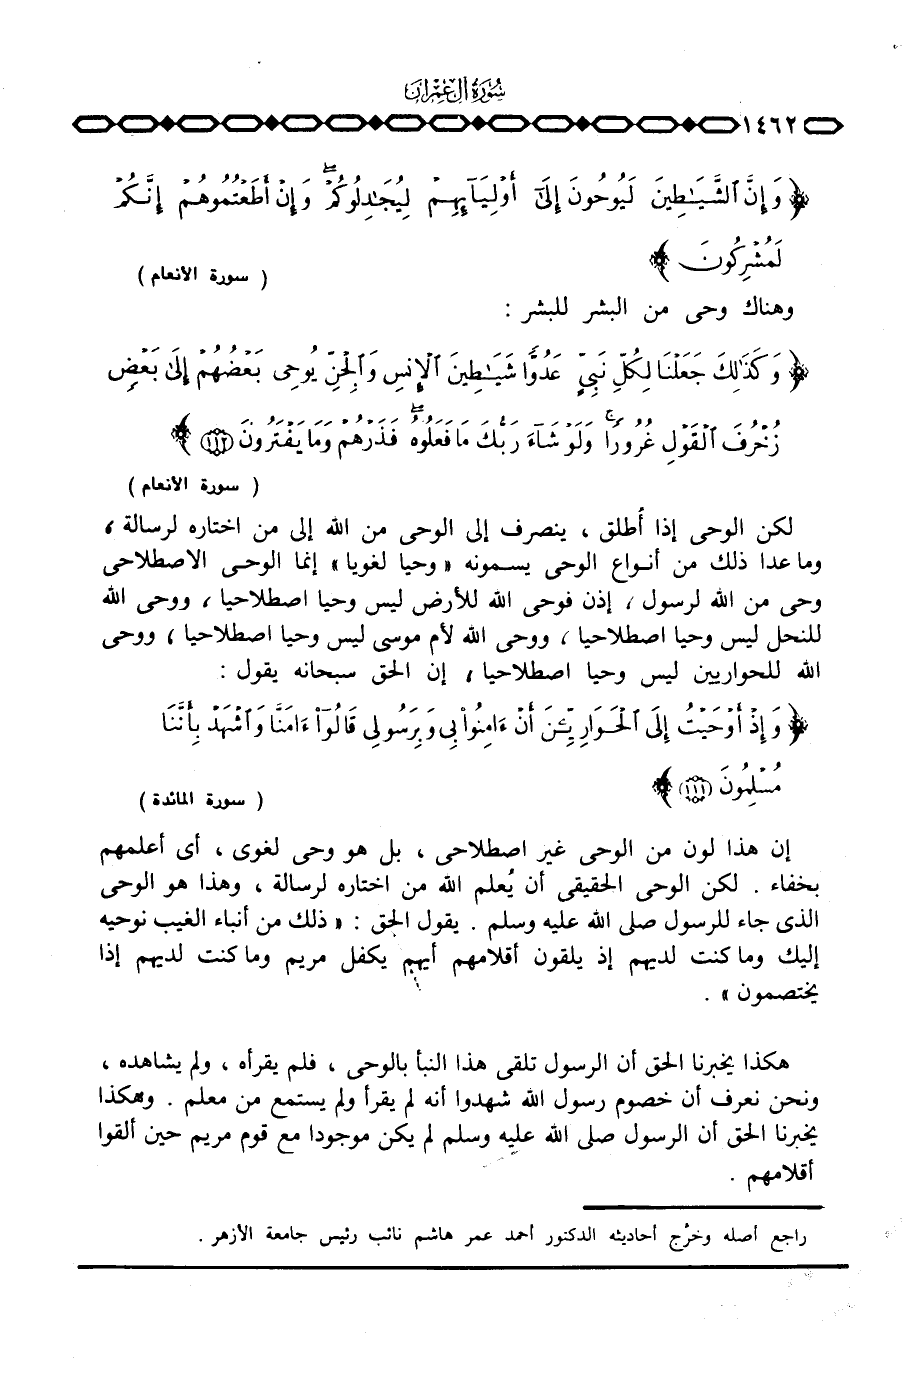 سُورَةُ آلِ عِمْرَانَ
١٤٦٢
﴿ وَإِنَّ ٱلشَّيَٰطِينَ لَيُوحُونَ إِلَىٰٓ أَوْلِيَآئِهِمْ لِيُجَٰدِلُوكُمْ ۖ وَإِنْ أَطَعْتُمُوهُمْ إِنَّكُمْ
لَمُشْرِكُونَ ﴾
( سورة الأنعام )
وهناك وحى من البشر للبشر :
﴿ وَكَذَٰلِكَ جَعَلْنَا لِكُلِّ نَبِيٍّ عَدُوًّا شَيَٰطِينَ ٱلْإِنسِ وَٱلْجِنِّ يُوحِى بَعْضُهُمْ إِلَىٰ بَعْضٍ
زُخْرُفَ ٱلْقَوْلِ غُرُورًا ۚ وَلَوْ شَآءَ رَبُّكَ مَا فَعَلُوهُ ۖ فَذَرْهُمْ وَمَا يَفْتَرُونَ ﴿١١٢﴾ ﴾
( سورة الأنعام )
لكن الوحى إذا أُطلق ، ينصرف إلى الوحى من الله إلى من اختاره لرسالة ،
وما عدا ذلك من أنواع الوحى يسمونه « وحيا لغويا » إنما الوحى الاصطلاحى
وحى من الله لرسول ، إذن فوحى الله للأرض ليس وحيا اصطلاحيا ، ووحى الله
للنحل ليس وحيا اصطلاحيا ، ووحى الله لأم موسى ليس وحيا اصطلاحيا ، ووحى
الله للحواريين ليس وحيا اصطلاحيا ، إن الحق سبحانه يقول :
﴿ وَإِذْ أَوْحَيْتُ إِلَى ٱلْحَوَارِيِّـۧنَ أَنْ ءَامِنُوا۟ بِى وَبِرَسُولِى قَالُوٓا۟ ءَامَنَّا وَٱشْهَدْ بِأَنَّنَا
مُسْلِمُونَ ﴿١١١﴾ ﴾
( سورة المائدة )
إن هذا لون من الوحى غير اصطلاحى ، بل هو وحى لغوى ، أى أعلمهم
بخفاء . لكن الوحى الحقيقى أن يُعلم الله من اختاره لرسالة ، وهذا هو الوحى
الذى جاء للرسول صلى الله عليه وسلم . يقول الحق : « ذلك من أنباء الغيب نوحيه
إليك وما كنت لديهم إذ يلقون أقلامهم أيهم يكفل مريم وما كنت لديهم إذا
يختصمون » .
هكذا يخبرنا الحق أن الرسول تلقى هذا النبأ بالوحى ، فلم يقرأه ، ولم يشاهده ،
ونحن نعرف أن خصوم رسول الله شهدوا أنه لم يقرأ ولم يستمع من معلم . وهكذا
يخبرنا الحق أن الرسول صلى الله عليه وسلم لم يكن موجودا مع قوم مريم حين ألقوا
أقلامهم .
راجع أصله وخرّج أحاديثه الدكتور أحمد عمر هاشم نائب رئيس جامعة الأزهر .